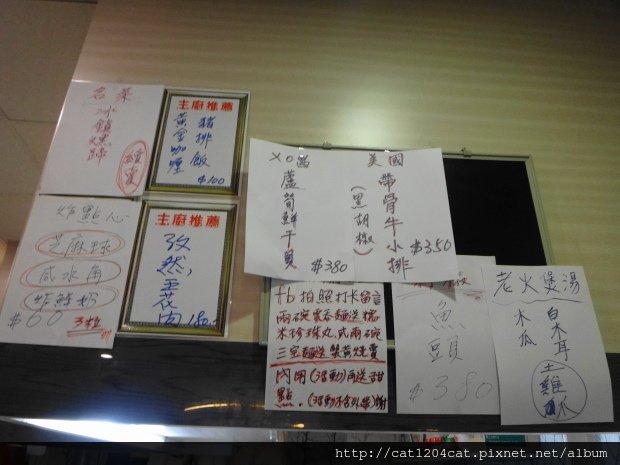 名菜
冰鎮燻蹄
主廚推薦
黃金咖哩
豬排飯
$100
XO醬
蘆筍鮮干貝
$380
美國
帶骨牛小排
(黑胡椒)
$350
炸點心
芝麻球
咸水角
炸鮮奶
$60
3粒
主廚推薦
孜然玉花肉
180
fb拍照打卡留言
兩碗雲吞麵送糙
米珍珠丸式兩碗
三宝麵送蟹黃燒賣
內用(活動)再送甜
點.(活動不含外帶)謝
魚頭
$380
老火煲湯
木瓜
白木耳
土雞
http://cat1204cat.pixnet.net/album